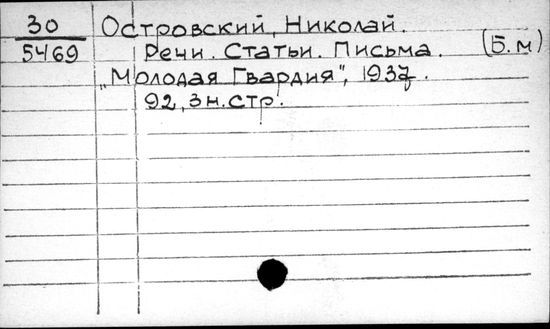 30 Островский, Николай.
5469 Речи. Статьи. Письма. (Б.м)
„Молодая Гвардия", 1937.
92, 3 н.стр.